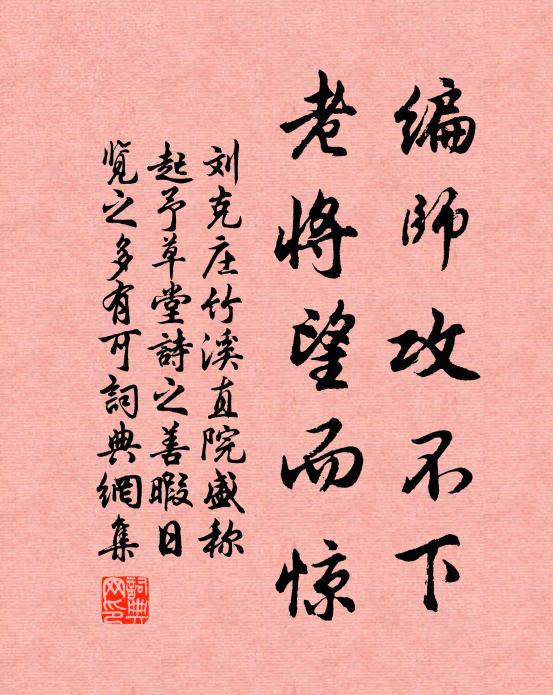 编師攻不下
老将望而惊
刘克庄竹溪直院盛称
起予草堂詩之善暇日
覧之多有可詞典網集
詞典網印